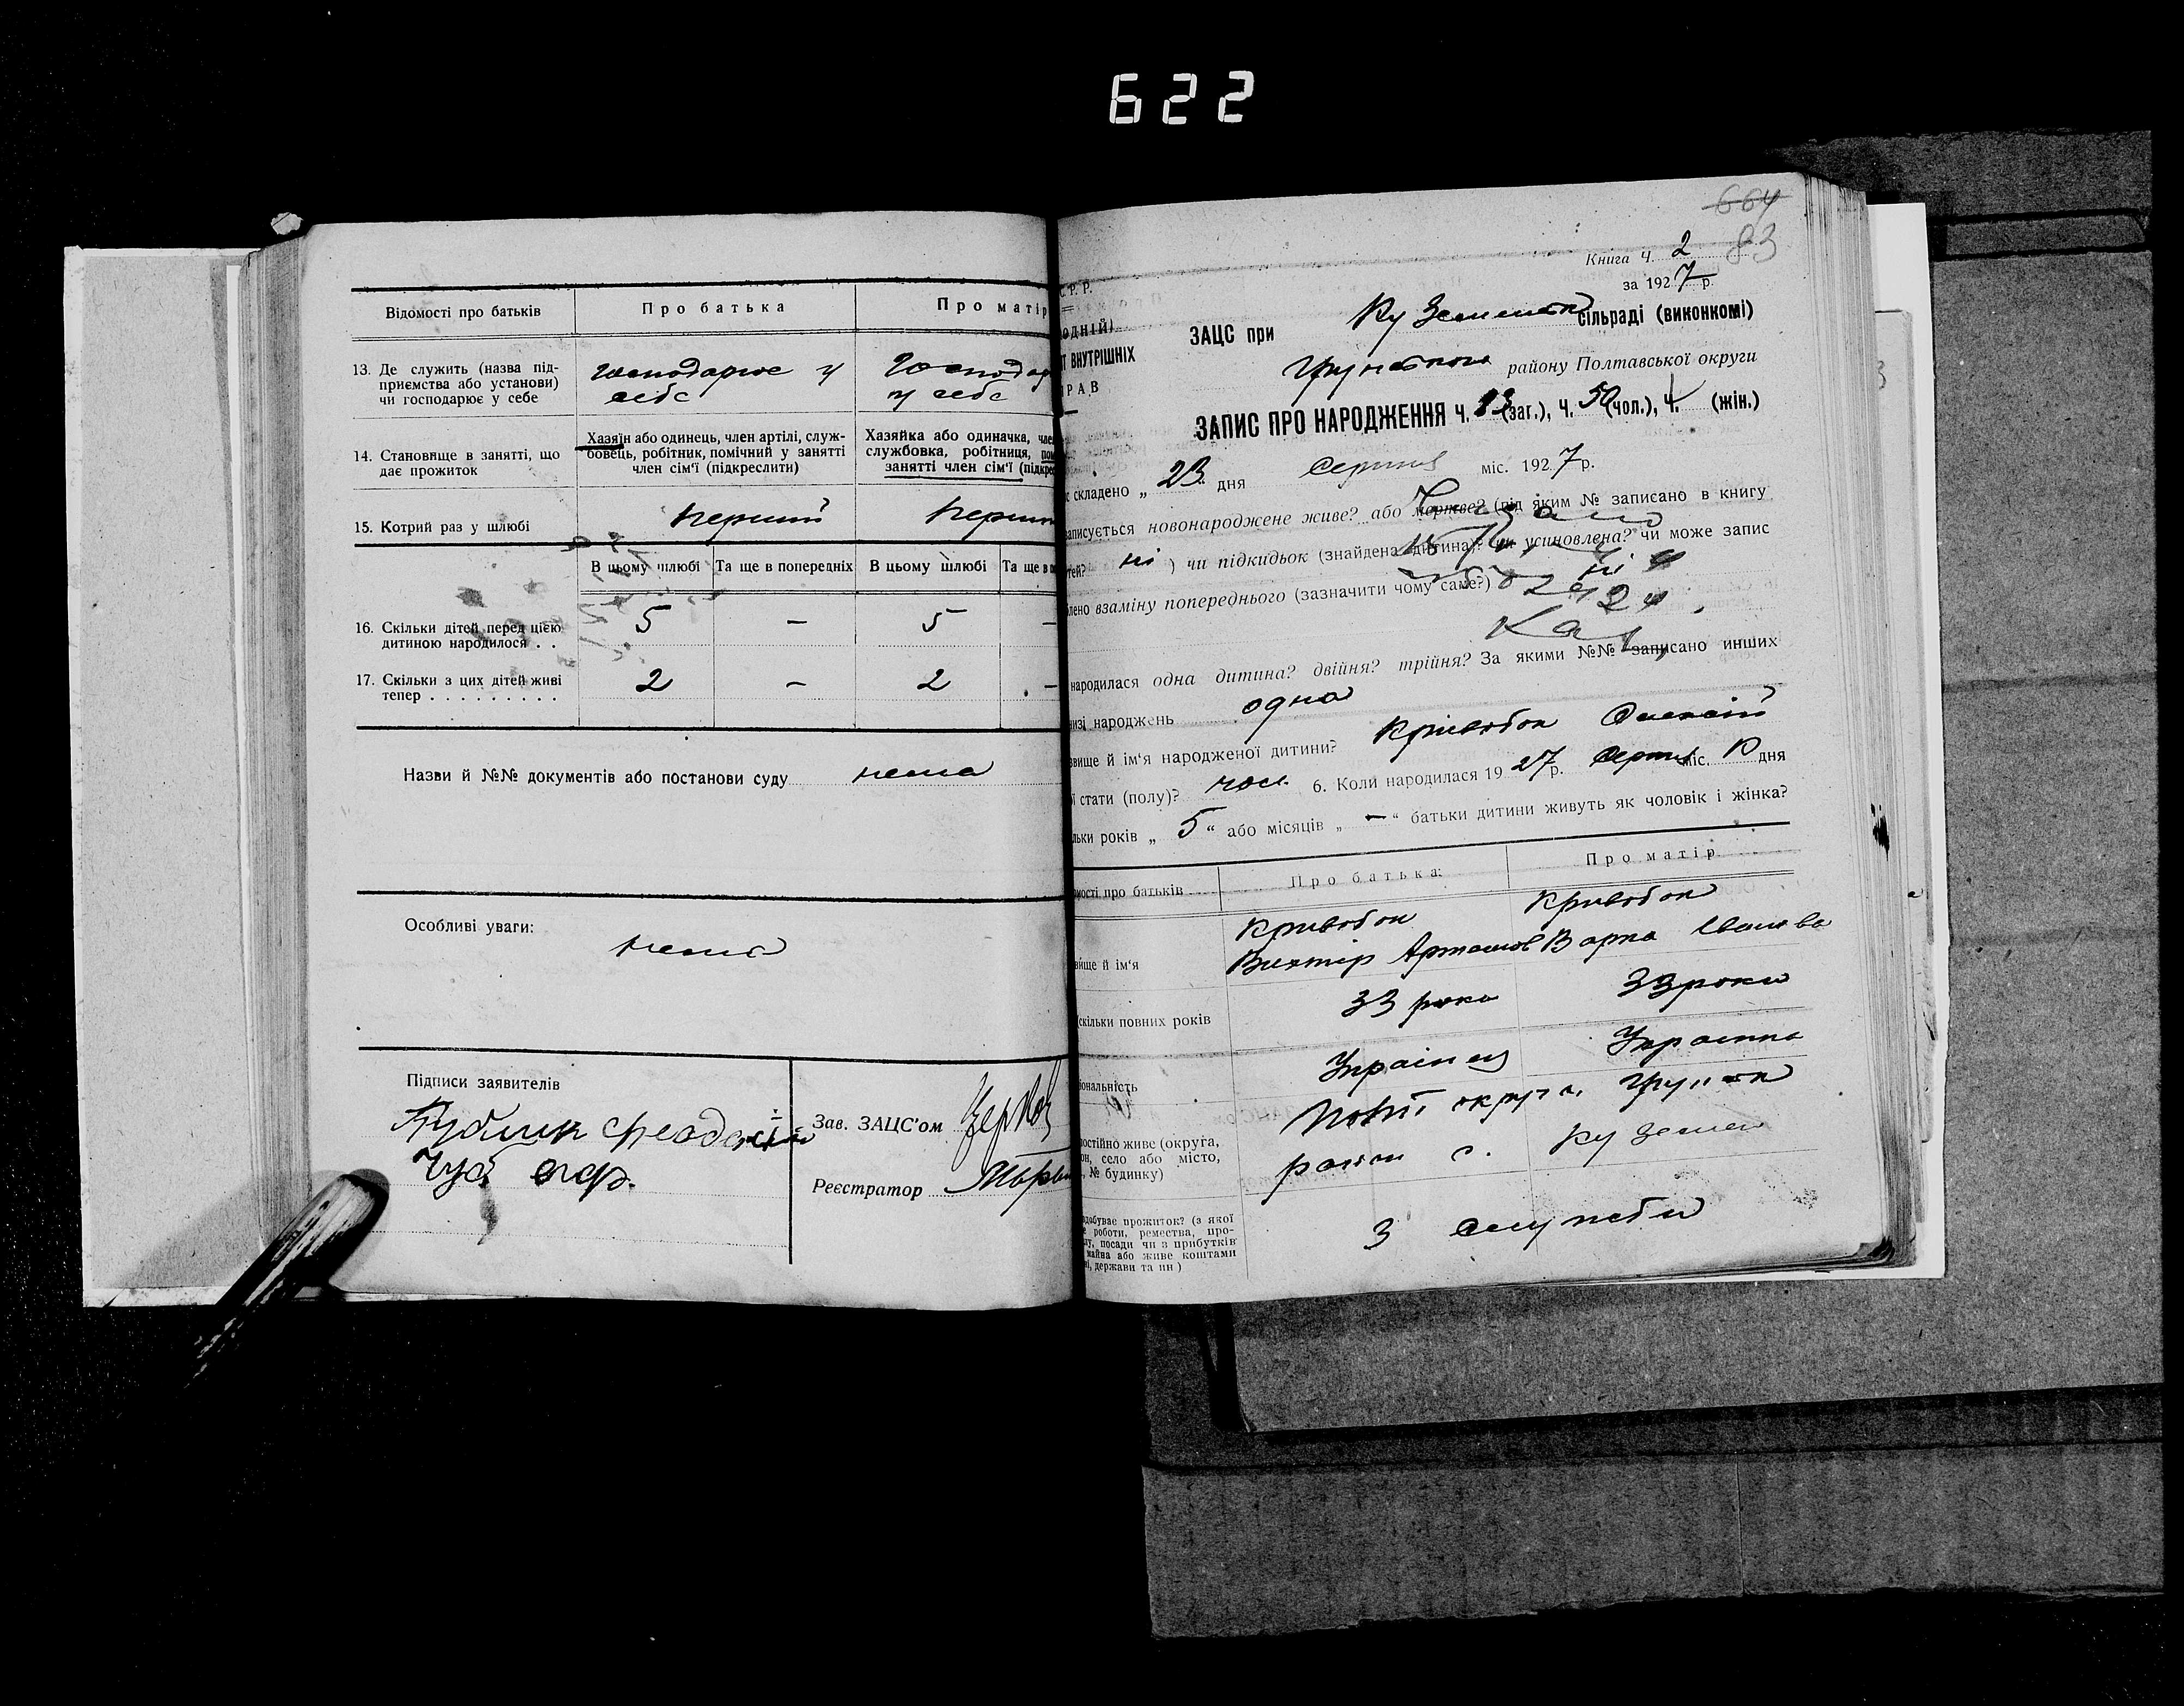 622
Відомості про батьків
Про батька
Про матір
13. Де служить (назва під-
приємства або установи)
чи господарює у себе
господарює у
себе
Господар
у себе
14. Становище в занятті, що
дає прожиток
Хазяїн або одинець, член артілі, служ-
бовець, робітник, помічний у занятті
член сім'ї (підкреслити)
Хазяйка або одиначка, чле
службовка, робітниця, пом
занятті член сім'ї (підкре
15. Котрий раз у шлюбі
перший
перши
В цьому шлюбі
Та ще в попередніх
В цьому шлюбі
Та ще в по
16. Скільки дітей перед цією
дитиною народилося . .
5 – 5 –
17. Скільки з цих дітей живі
тепер . . . . . . . . .
2 – 2 –
Назви й №№ документів або постанови суду нема
Особливі уваги:
нема
Підписи заявителів
Зав. ЗАЦС'ом
Реєстратор
664
83
Книга ч. 2
за 1927 р.
С.Р.Р.
ОДНІЙ)
Т ВНУТРІШНІХ
РАВ
ЗАЦС при сільраді (виконкомі)
району Полтавської округи
ЗАПИС ПРО НАРОДЖЕННЯ ч. 83 (заг.), ч. 50 (чол.), ч. (жін.)
с складено „ 23 “ дня Серпня міс. 1927 р.
аписується новонароджене живе? або мертве? (під яким № записано в книгу
тей? ні ) чи підкидьок (знайдена дитина)? чи усиновлена? чи може запис
лено взаміну попереднього (зазначити чому саме?)
народилася одна дитина? двійня? трійня? За якими №№ записано инших
низі народжень одна
звище й ім'я народженої дитини? Кривобок Олексій
ї стати (полу)? чол. 6. Коли народилася 1927 р. Серпня міс. дня
льки років „ 5 “ або місяців „ – “ батьки дитини живуть як чоловік і жінка?
мості про батьків
Про батька:
Про матір
вище й ім'я
Кривобок
Віктір Артемов
Кривобок
Варка Іванова
скільки повних років
33 роки
33 роки
іональність
Українец
Українка
постійно живе (округа,
он, село або місто,
, № будинку)
округа,
район с.
здобуває прожиток? (з якої
е роботи, ремества, про-
лу, посади чи з прибутків
майна або живе коштами
ні, держави та ин )
З служби